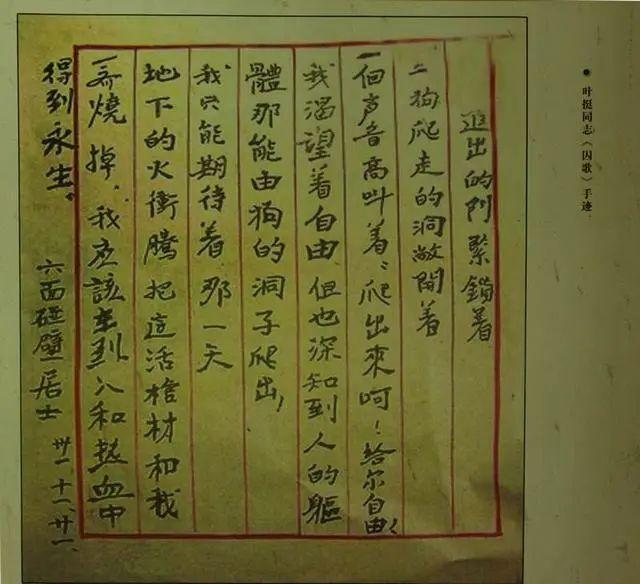 ● 叶挺同志《囚歌》手迹
進出的門緊鎖着
二狗爬走的洞敞開着
一個声音高叫着：爬出來呵！给尔自由！
我渴望着自由，但也深知到人的軀
體那能由狗的洞子爬出！
我只能期待着，那一天
地下的火衝騰把這活棺材和我
一齊燒掉，我应該在烈火和热血中
得到永生、
六面碰壁居士 卅一、十一、廿一、